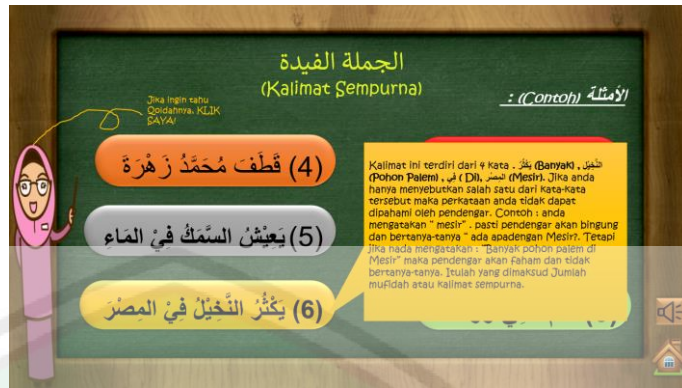 الجملة الفيدة
(Kalimat Sempurna)
الأمثلة (Contoh) :
Jika ingin tahu
Qoidahnya, KLIK
SAYA!
(4) قَطَفَ مُحَمَّدُ زَهْرَةً
(5) يَعِيْشُ السَّمَكُ فِيْ المَاءِ
(6) يَكْثُرُ النَّخِيْلُ فِيْ المِصْرَ
Kalimat ini terdiri dari 4 kata . يَكْثُرُ (Banyak) , النَّخِيْل
(Pohon Palem) , فِي ( Di), المِصر (Mesir). Jika anda
hanya menyebutkan salah satu dari kata-kata
tersebut maka perkataan anda tidak dapat
dipahami oleh pendengar. Contoh : anda
mengatakan " mesir" . pasti pendengar akan bingung
dan bertanya-tanya " ada apadengan Mesir?. Tetapi
jika nada mengatakan : "Banyak pohon palem di
Mesir" maka pendengar akan faham dan tidak
bertanya-tanya. Itulah yang dimaksud Jumlah
mufidah atau kalimat sempurna.